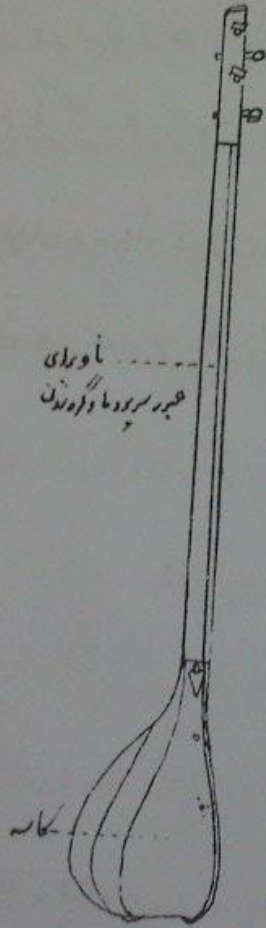 ناو برای
عبور سر پرده‌ها و گره زدن
کاسه